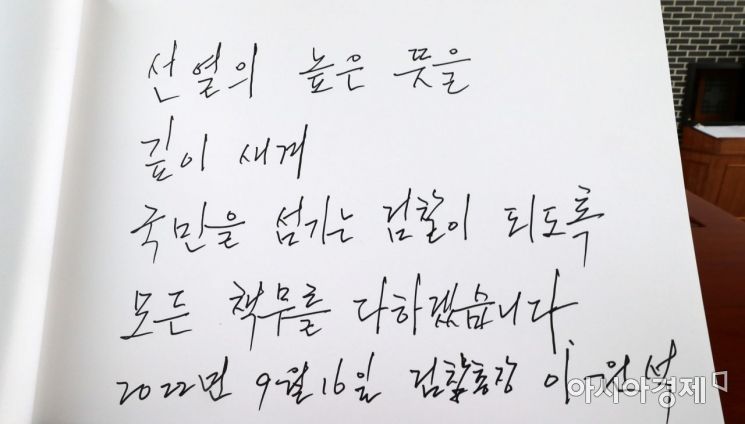 선열의 높은 뜻을
깊이 새겨
국민을 섬기는 검찰이 되도록
모든 책무를 다하겠습니다
2022년 9월 16일 검찰총장 이원석
아시아경제